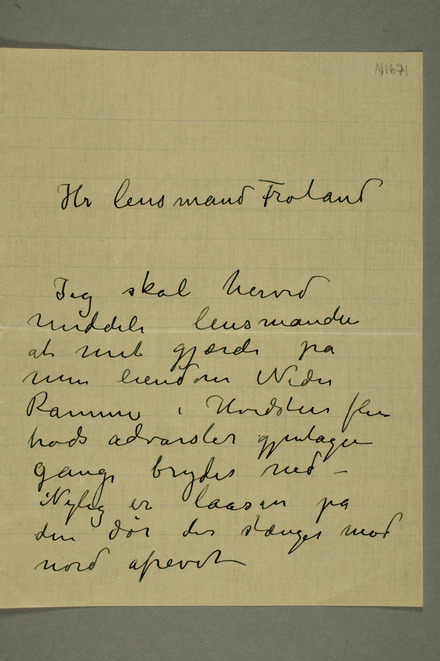 N1671
Hr lensmand Froland
Jeg skal herved
meddele lensmanden
at mit gjærde på
min eiendom Nedre
Ramme i Hvidsten
trods advarsler gjentagne
gange brydes ned –
Nylig er laasen på
den dør der stænges mod
nord afrevet –